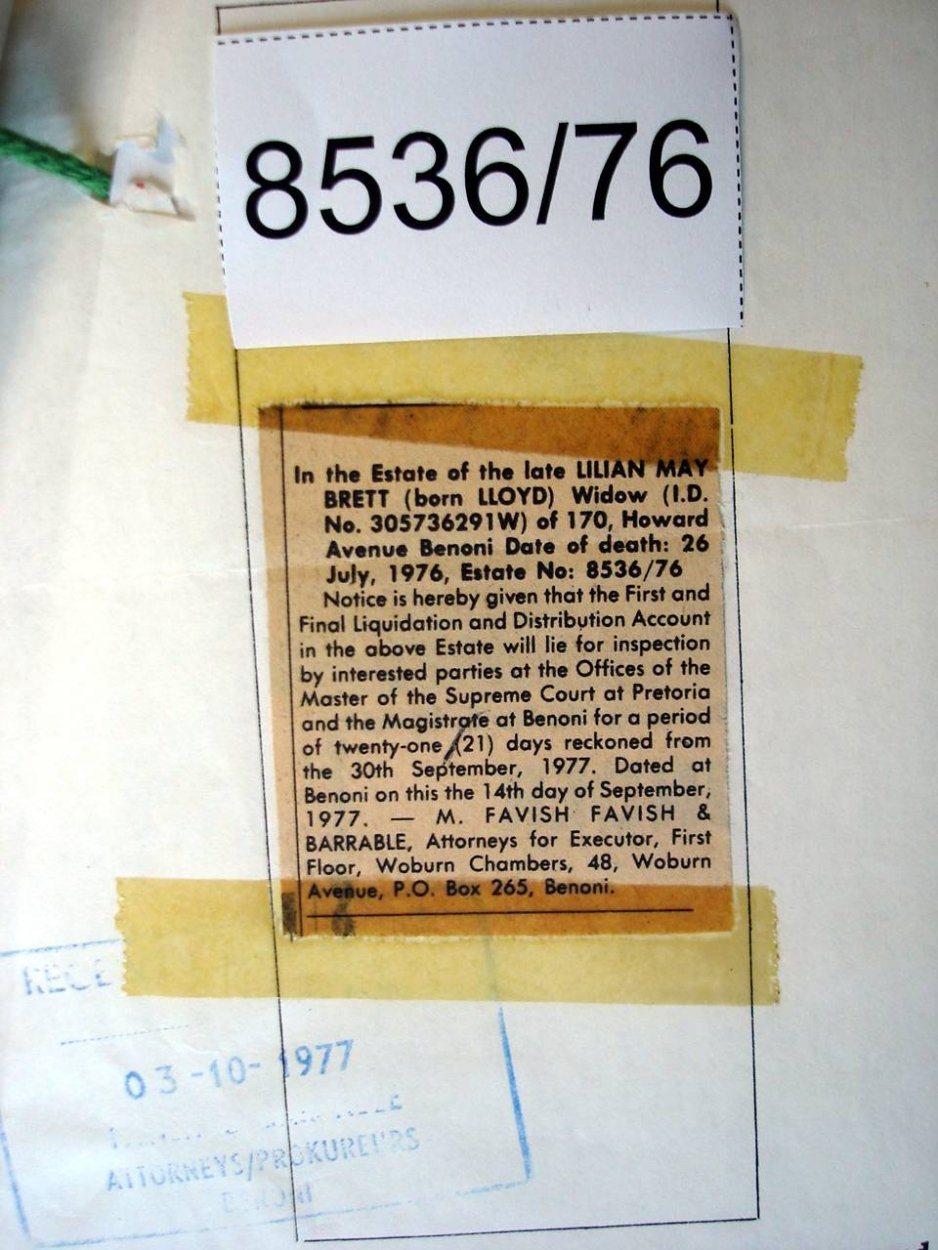 8536/76
In the Estate of the late LILIAN MAY
BRETT (born LLOYD) Widow (I.D.
No. 305736291W) of 170, Howard
Avenue Benoni Date of death: 26
July, 1976, Estate No: 8536/76
Notice is hereby given that the First and
Final Liquidation and Distribution Account
in the above Estate will lie for inspection
by interested parties at the Offices of the
Master of the Supreme Court at Pretoria
and the Magistrate at Benoni for a period
of twenty-one (21) days reckoned from
the 30th September, 1977. Dated at
Benoni on this the 14th day of September,
1977. — M. FAVISH FAVISH &
BARRABLE, Attorneys for Executor, First
Floor, Woburn Chambers, 48, Woburn
Avenue, P.O. Box 265, Benoni.
03-10-1977
ATTORNEYS/PROKUREURS
BENONI